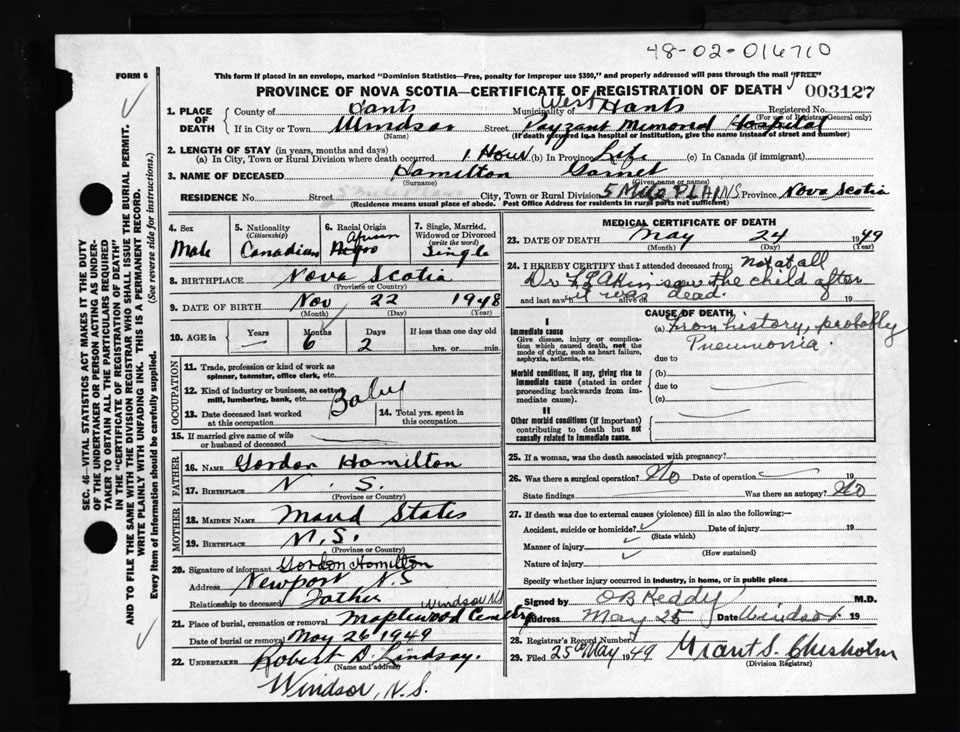 48-02-016710
FORM 6
This form if placed in an envelope, marked "Dominion Statistics—Free, penalty for improper use $300," and properly addressed will pass through the mail "FREE"
PROVINCE OF NOVA SCOTIA—CERTIFICATE OF REGISTRATION OF DEATH 003127
1. PLACE OF DEATH
County of Hants Municipality of West Hants Registered No.
(For use of Registrar General only)
If in City or Town Windsor Street Payzant Memorial Hospital
(Name) (If death occurred in a hospital or institution, give the name instead of street and number)
2. LENGTH OF STAY (in years, months and days)
(a) In City, Town or Rural Division where death occurred 1 Hour (b) In Province Life (c) In Canada (if immigrant)
3. NAME OF DECEASED Hamilton Garnet
(Surname) (Given name or names)
RESIDENCE No. Street City, Town or Rural Division 5 Mile PLAINS Province Nova Scotia
(Residence means usual place of abode. Post Office Address for residents in rural parts not sufficient)
4. Sex Male
5. Nationality (Citizenship) Canadian
6. Racial Origin African Negro
7. Single, Married, Widowed or Divorced (write the word) Single
8. BIRTHPLACE Nova Scotia
(Province or Country)
9. DATE OF BIRTH Nov 22 1948
(Month) (Day) (Year)
10. AGE in Years — Months 6 Days 2 If less than one day old
hrs. or min.
OCCUPATION
11. Trade, profession or kind of work as spinner, teamster, office clerk, etc.
12. Kind of industry or business, as cotton mill, lumbering, bank, etc. Baby
13. Date deceased last worked at this occupation
14. Total yrs. spent in this occupation
15. If married give name of wife or husband of deceased
FATHER
16. NAME Gordon Hamilton
17. BIRTHPLACE N. S.
(Province or Country)
MOTHER
18. MAIDEN NAME Maud States
19. BIRTHPLACE N.S.
(Province or Country)
20. Signature of informant Gordon Hamilton
Address Newport N.S
Relationship to deceased Father
21. Place of burial, cremation or removal Maplewood Cemetery Windsor NS
Date of burial or removal May 26 1949
22. UNDERTAKER Robert D. Lindsay.
(Name and address)
Windsor, N.S.
MEDICAL CERTIFICATE OF DEATH
23. DATE OF DEATH May 24 1949
(Month) (Day) (Year)
24. I HEREBY CERTIFY that I attended deceased from Not at all
Dr saw the child after
and last saw alive on it was dead. 19
CAUSE OF DEATH
I
Immediate cause
Give disease, injury or complication which caused death, not the mode of dying, such as heart failure, asphyxia, asthenia, etc.
(a) From history, probably
Pneumonia.
due to
Morbid conditions, if any, giving rise to immediate cause (stated in order proceeding backwards from immediate cause).
(b)
due to
(c)
II
Other morbid conditions (if important) contributing to death but not causally related to immediate cause.
25. If a woman, was the death associated with pregnancy?
26. Was there a surgical operation? No Date of operation 19
State findings Was there an autopsy? No
27. If death was due to external causes (violence) fill in also the following:—
Accident, suicide or homicide? Date of injury 19
(State which)
Manner of injury
(How sustained)
Nature of injury
Specify whether injury occurred in industry, in home, or in public place
Signed by OB Keddy M.D.
Address May 25 Date Windsor 19
28. Registrar's Record Number
29. Filed 25th May 1949 Grant S. Chisholm
(Division Registrar)
SEC. 46—VITAL STATISTICS ACT MAKES IT THE DUTY
OF THE UNDERTAKER OR PERSON ACTING AS UNDERTAKER TO OBTAIN ALL THE PARTICULARS REQUIRED
IN THE "CERTIFICATE OF REGISTRATION OF DEATH"
AND TO FILE THE SAME WITH THE DIVISION REGISTRAR WHO SHALL ISSUE THE BURIAL PERMIT.
WRITE PLAINLY WITH UNFADING INK. THIS IS A PERMANENT RECORD.
Every item of information should be carefully supplied. (See reverse side for instructions.)